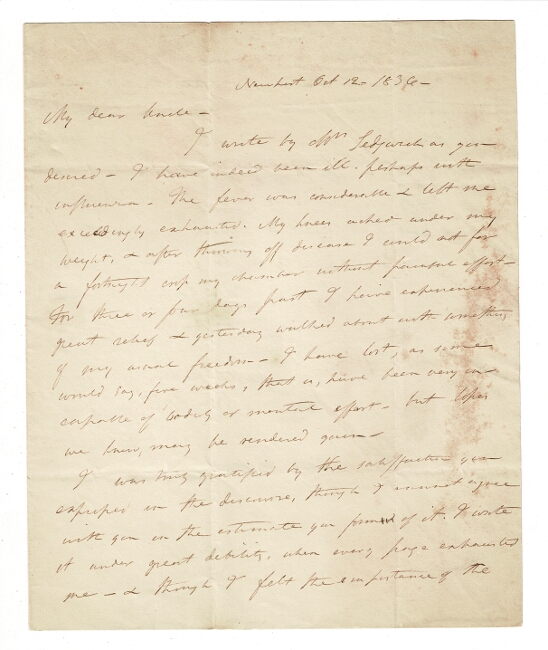 Newport Oct 12 - 1836 -
My dear Uncle -
I write by Mrs Sedgwick as you
desired - I have indeed been ill - perhaps with
influenza - The fever was considerable & left me
exceedingly exhausted. My knees ached under my
weight, & after throwing off disease I could not for
a fortnight my chamber without painful effort -
For three or four days past I have experienced
great relief & yesterday walked about with something
of my usual freedom - I have lost, as some
would say, five weeks, that is, have been very in-
capable of bodily or mental effort - but losses
we know, may be rendered gains -
I was truly gratified by the satisfaction you
expressed in the discourse, though I cannot agree
with you in the estimate you formed of it. I wrote
it under great debility, when every page exhausted
me - & though I felt the importance of the